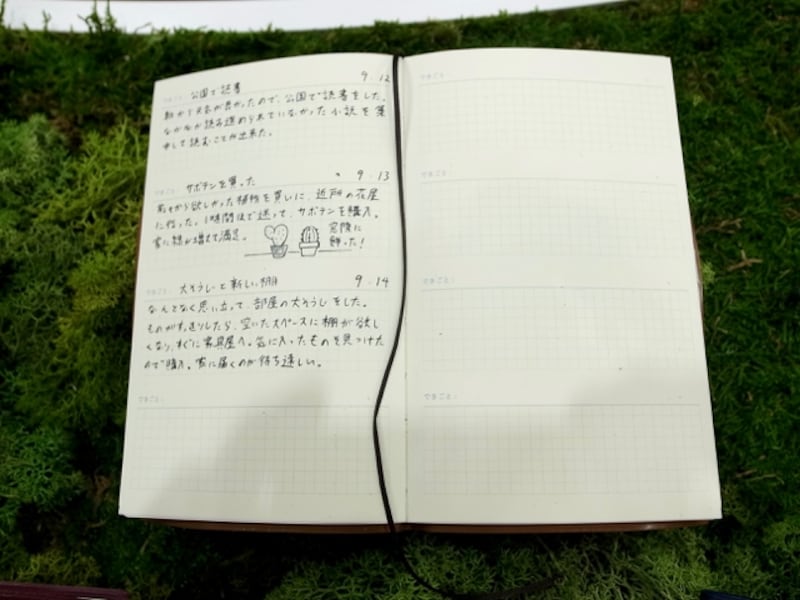 できごと: 公園で読書 9.12
朝から天気が良かったので、公園で読書をした。
なかなか読み進められていなかった小説を集
中して読むことが出来た。
できごと: サボテンを買った 9.13
前々から欲しかった植物を買いに、近所の花屋
に行った。1時間ほど迷って、サボテンを購入。
家に緑が増えて満足。
窓際に
飾った!
できごと: 大そうじと新しい棚 9.14
なんとなく思い立って、部屋の大そうじをした。
ものがすっきりしたら、空いたスペースに棚が欲し
くなり、すぐに家具屋へ。気に入ったものを見つけた
ので購入。家に届くのが待ち遠しい。
できごと:
できごと:
できごと:
できごと:
できごと: